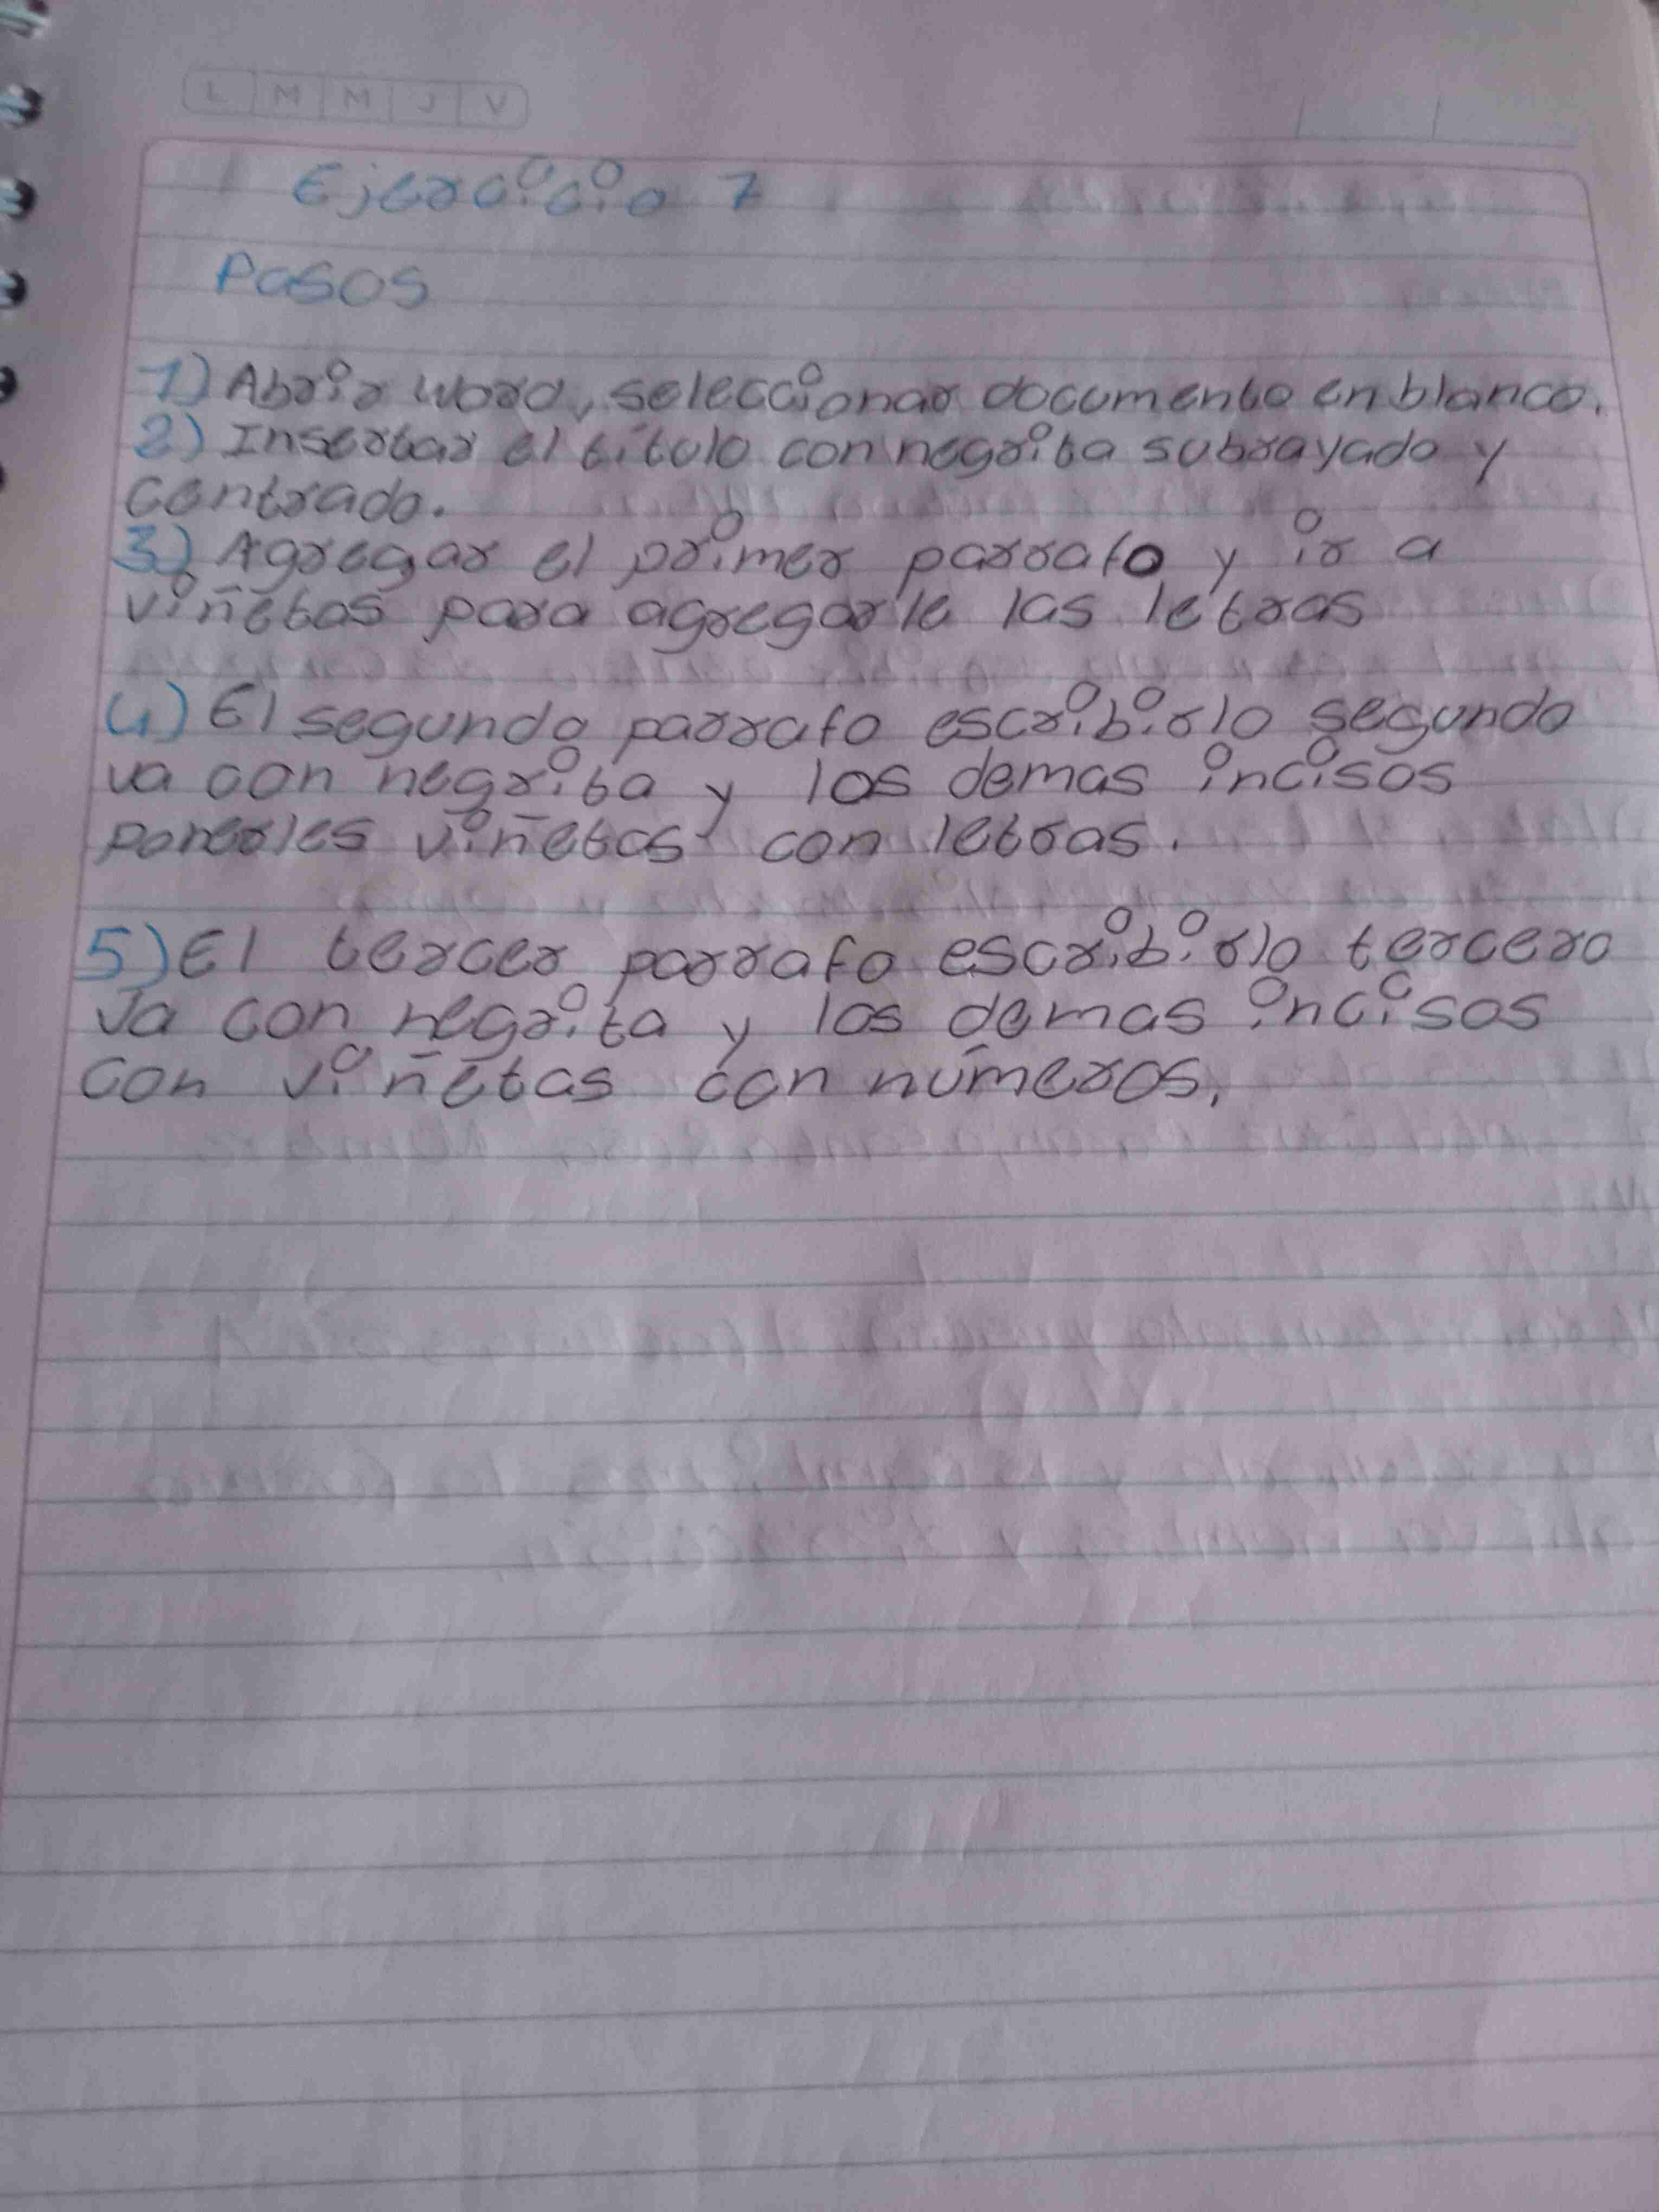 L M M J V
Ejercicio 7
Pasos
1) Abrir word, seleccionar documento en blanco.
2) Insertar el título con negrita subrayado y
centrado.
3) Agregar el primer parrafo y ir a
viñetas para agregarle las letras
4) El segundo parrafo escribirlo segundo
va con negrita y los demas incisos
ponerles viñetas con letras.
5) El tercer parrafo escribirlo tercero
va con negrita y los demas incisos
con viñetas con números.